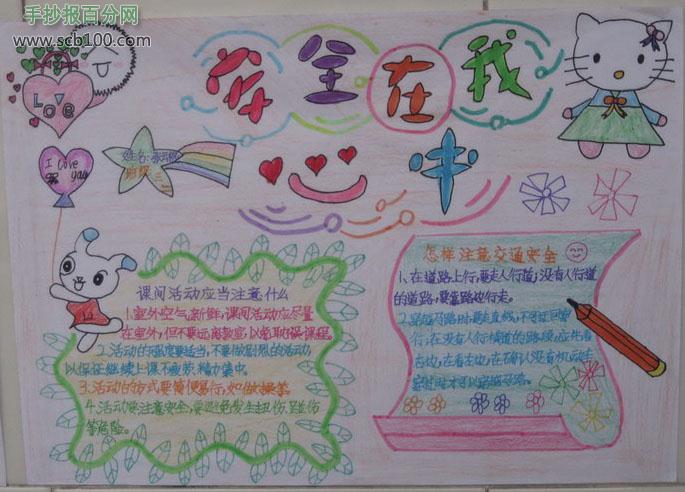 手抄报百分网
www.scb100.com
安全在我
心中
LOVE
I love
you
姓名:
班级:三
课间活动应当注意什么
1.室外空气新鲜,课间活动应尽量
在室外,但不要远离教室,以免耽误课程。
2.活动的强度要适当,不要做剧烈的活动,
以保证继续上课不疲劳,精力集中。
3.活动的方式要简便易行,如做做操等。
4.活动要注意安全,要避免发生扭伤,碰伤
等危险。
怎样注意交通安全
1、在道路上行,要走人行道;没有人行道
的道路,要靠路边行走。
2.横穿马路时,要走直线,不可迂回穿
行;在没有人行横道的路段,应先看
左边,在看右边,在确认没有机动车
才可以穿越马路。